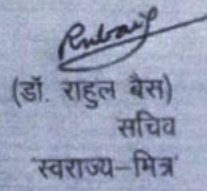 (डॉ. राहुल बैस)
सचिव
'स्वराज्य-मित्र'